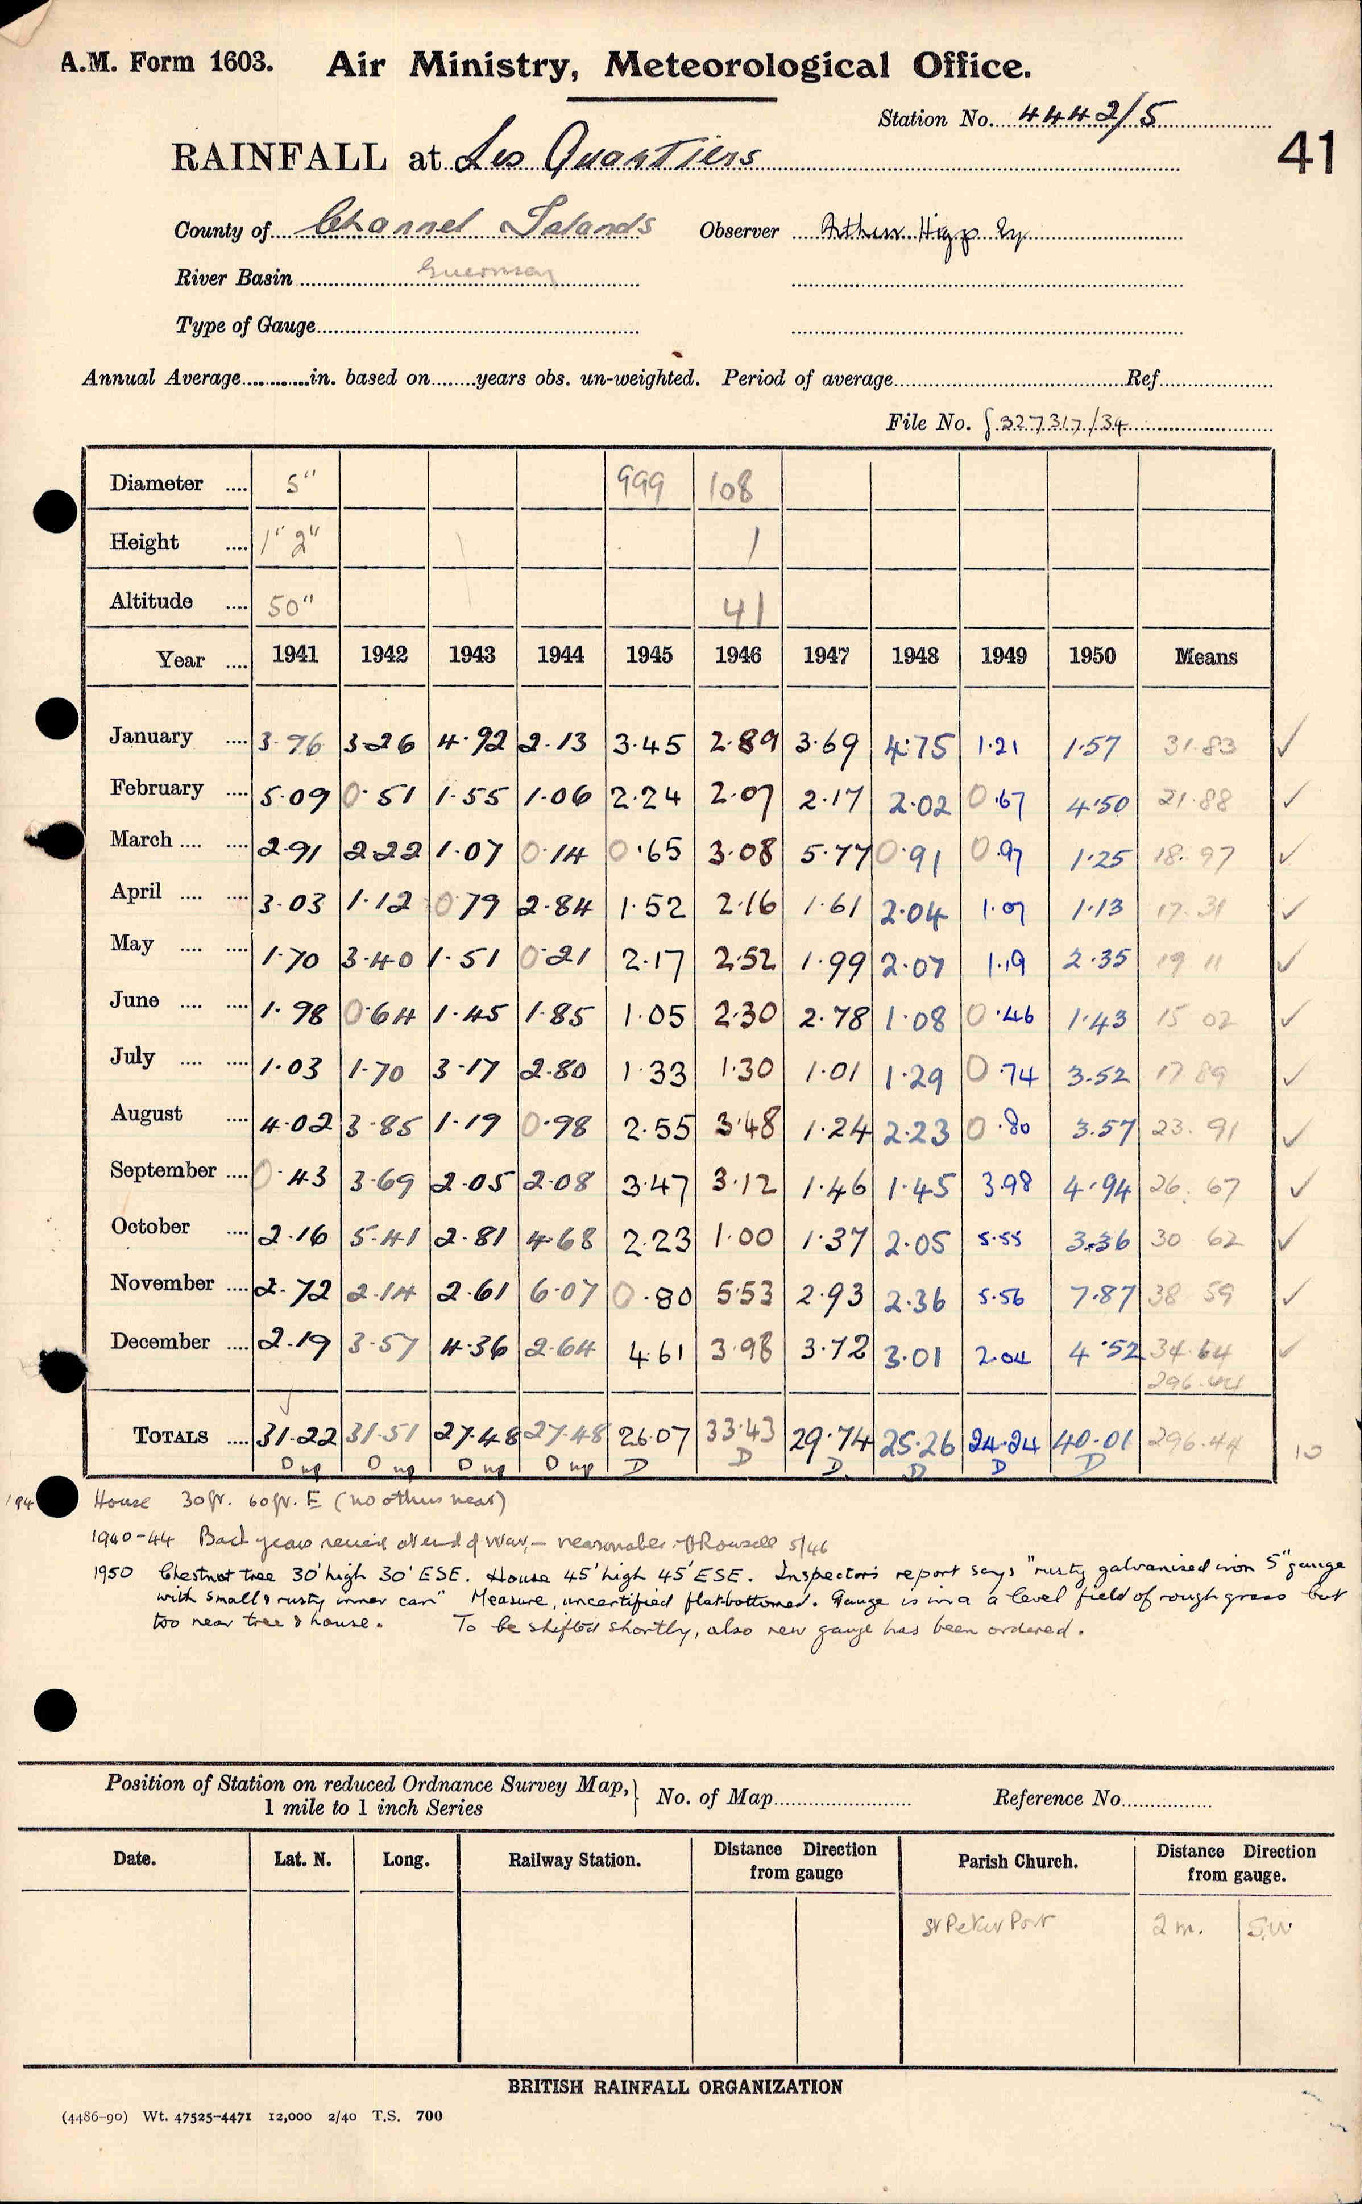 A.M. Form 1603. Air Ministry, Meteorological Office.
Station No. 4442/5
41
RAINFALL at Les Quartiers
County of Channel Islands Observer Arthur Higgs Esq
River Basin Guernsey
Type of Gauge
Annual Average in. based on years obs. un-weighted. Period of average Ref
File No. 327317/34
Diameter 5" 999 108
Height 1" 2" 1
Altitude 50" 41
Year 1941 1942 1943 1944 1945 1946 1947 1948 1949 1950 Means
January 3.96 3.26 4.92 2.13 3.45 2.89 3.69 4.75 1.21 1.57 31.83 ✓
February 5.09 0.51 1.55 1.06 2.24 2.07 2.17 2.02 0.67 4.50 21.88 ✓
March 2.91 2.22 1.07 0.14 0.65 3.08 5.77 0.91 0.97 1.25 18.97 ✓
April 3.03 1.12 0.79 2.84 1.52 2.16 1.61 2.04 1.07 1.13 17.31 ✓
May 1.70 3.40 1.51 0.21 2.17 2.52 1.99 2.07 1.19 2.35 19.11 ✓
June 1.98 0.64 1.45 1.85 1.05 2.30 2.78 1.08 0.46 1.43 15.02 ✓
July 1.03 1.70 3.17 2.80 1.33 1.30 1.01 1.29 0.74 3.52 17.89 ✓
August 4.02 3.85 1.19 0.98 2.55 3.48 1.24 2.23 0.80 3.57 23.91 ✓
September 0.43 3.69 2.05 2.08 3.47 3.12 1.46 1.45 3.98 4.94 26.67 ✓
October 2.16 5.41 2.81 4.68 2.23 1.00 1.37 2.05 5.55 3.36 30.62 ✓
November 2.72 2.14 2.61 6.07 0.80 5.53 2.93 2.36 5.56 7.87 38.59 ✓
December 2.19 3.57 4.36 2.64 4.61 3.98 3.72 3.01 2.04 4.52 34.64 ✓
296.44
TOTALS 31.22 31.51 27.48 27.48 26.07 33.43 29.74 25.26 24.24 40.01 296.44 10
D up D up D up D up D D D D D D
194 House 30 fr. 60 fr. E (no others near)
1940-44 Back years received at end of War, - reasonable. 5/46
1950 Chestnut tree 30' high 30' ESE. House 45' high 45' ESE. Inspectors report says "rusty galvanised iron 5" gauge
with small & rusty inner can" Measure, uncertified flatbottomed. Gauge is in a a level field of rough grass but
too near tree & house. To be shifted shortly, also new gauge has been ordered.
Position of Station on reduced Ordnance Survey Map, 1 mile to 1 inch Series } No. of Map Reference No.
Date. Lat. N. Long. Railway Station. Distance Direction from gauge Parish Church. Distance Direction from gauge.
St Peter Port 2 m. S.W
BRITISH RAINFALL ORGANIZATION
(4486-90) Wt. 47525-4471 12,000 2/40 T.S. 700